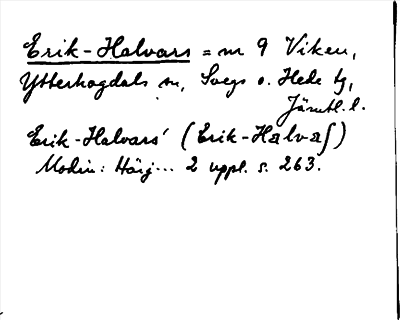 Erik-Halvars = nr 9 Viken,
Ytterhogdals sn, Svegs o. Hede tg,
Jämtl. l.
Erik-Halvars' (Erik-Halvaʃ)
Modin: Härj... 2 uppl. s. 263.